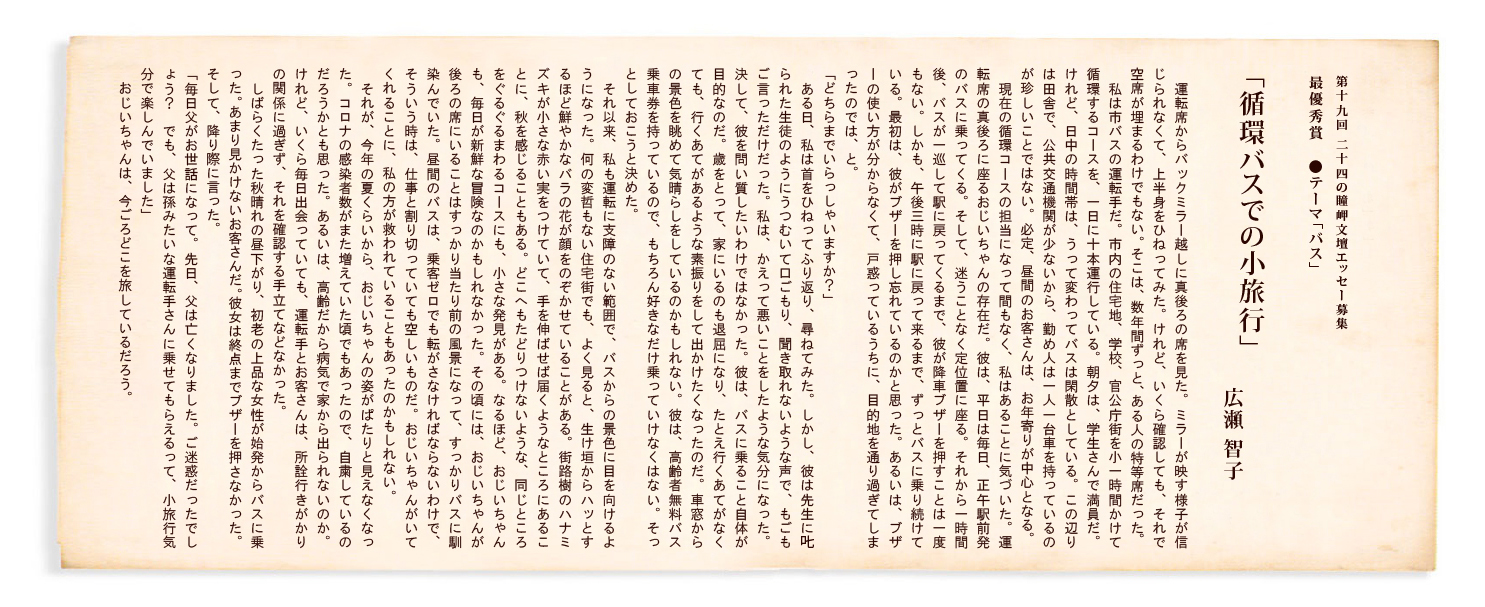 第十九回 二十四の瞳岬文壇エッセー募集
最優秀賞 ●テーマ「バス」
「循環バスでの小旅行」 広瀬 智子
運転席からバックミラー越しに真後ろの席を見た。ミラーが映す様子が信
じられなくて、上半身をひねってみた。けれど、いくら確認しても、それで
空席が埋まるわけでもない。そこは、数年間ずっと、ある人の特等席だった。
私は市バスの運転手だ。市内の住宅地、学校、官公庁街を小一時間かけて
循環するコースを、一日に十本運行している。朝夕は、学生さんで満員だ。
けれど、日中の時間帯は、うって変わってバスは閑散としている。この辺り
は田舎で、公共交通機関が少ないから、勤め人は一人一台車を持っているの
が珍しいことではない。必定、昼間のお客さんは、お年寄りが中心となる。
現在の循環コースの担当になって間もなく、私はあることに気づいた。運
転席の真後ろに座るおじいちゃんの存在だ。彼は、平日は毎日、正午駅前発
のバスに乗ってくる。そして、迷うことなく定位置に座る。それから一時間
後、バスが一巡して駅に戻ってくるまで、彼が降車ブザーを押すことは一度
もない。しかも、午後三時に駅に戻って来るまで、ずっとバスに乗り続けて
いる。最初は、彼がブザーを押し忘れているのかと思った。あるいは、ブザ
ーの使い方が分からなくて、戸惑っているうちに、目的地を通り過ぎてしま
ったのでは、と。
「どちらまでいらっしゃいますか？」
ある日、私は首をひねってふり返り、尋ねてみた。しかし、彼は先生に叱
られた生徒のようにうつむいて口ごもり、聞き取れないような声で、もごも
ご言っただけだった。私は、かえって悪いことをしたような気分になった。
決して、彼を問い質したいわけではなかった。彼は、バスに乗ること自体が
目的なのだ。歳をとって、家にいるのも退屈になり、たとえ行くあてがなく
ても、行くあてがあるような素振りをして出かけたくなったのだ。車窓から
の景色を眺めて気晴らしをしているのかもしれない。彼は、高齢者無料バス
乗車券を持っているので、もちろん好きなだけ乗っていけなくはない。そっ
としておこうと決めた。
それ以来、私も運転に支障のない範囲で、バスからの景色に目を向けるよ
うになった。何の変哲もない住宅街でも、よく見ると、生け垣からハッとす
るほど鮮やかなバラの花が顔をのぞかせていることがある。街路樹のハナミ
ズキが小さな赤い実をつけていて、手を伸ばせば届くようなところにあるこ
とに、秋を感じることもある。どこへもたどりつけないような、同じところ
をぐるぐるまわるコースにも、小さな発見がある。なるほど、おじいちゃん
も、毎日が新鮮な冒険なのかもしれなかった。その頃には、おじいちゃんが
後ろの席にいることはすっかり当たり前の風景になって、すっかりバスに馴
染んでいた。昼間のバスは、乗客ゼロでも転がさなければならないわけで、
そういう時は、仕事と割り切っていても空しいものだ。おじいちゃんがいて
くれることに、私の方が救われていることもあったのかもしれない。
それが、今年の夏くらいから、おじいちゃんの姿がぱたりと見えなくなっ
た。コロナの感染者数がまた増えていた頃でもあったので、自粛しているの
だろうかとも思った。あるいは、高齢だから病気で家から出られないのか。
けれど、いくら毎日出会っていても、運転手とお客さんは、所詮行きがかり
の関係に過ぎず、それを確認する手立てなどなかった。
しばらくたった秋晴れの昼下がり、初老の上品な女性が始発からバスに乗
った。あまり見かけないお客さんだ。彼女は終点までブザーを押さなかった。
そして、降り際に言った。
「毎日父がお世話になって。先日、父は亡くなりました。ご迷惑だったでし
ょう？ でも、父は孫みたいな運転手さんに乗せてもらえるって、小旅行気
分で楽しんでいました」
おじいちゃんは、今ごろどこを旅しているだろう。